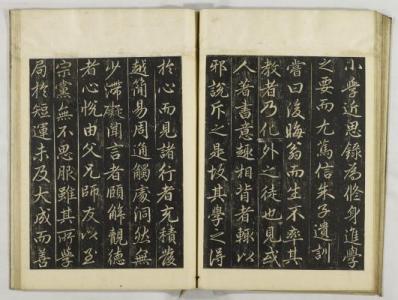 小學近思錄為修身進學
之要而尤篤信朱子遺訓
嘗曰後晦翁而生不率其
教者乃化外之徒也見或
人著書意趣相背者輒以
邪說斥之是故其學之得
於心而見諸行者充積發
越簡易周通觸處洞然無
少滯礙聞言者頤解觀德
者心悅由父兄師友以至
宗黨無不思服雖其所學
局於短運未及大成而善